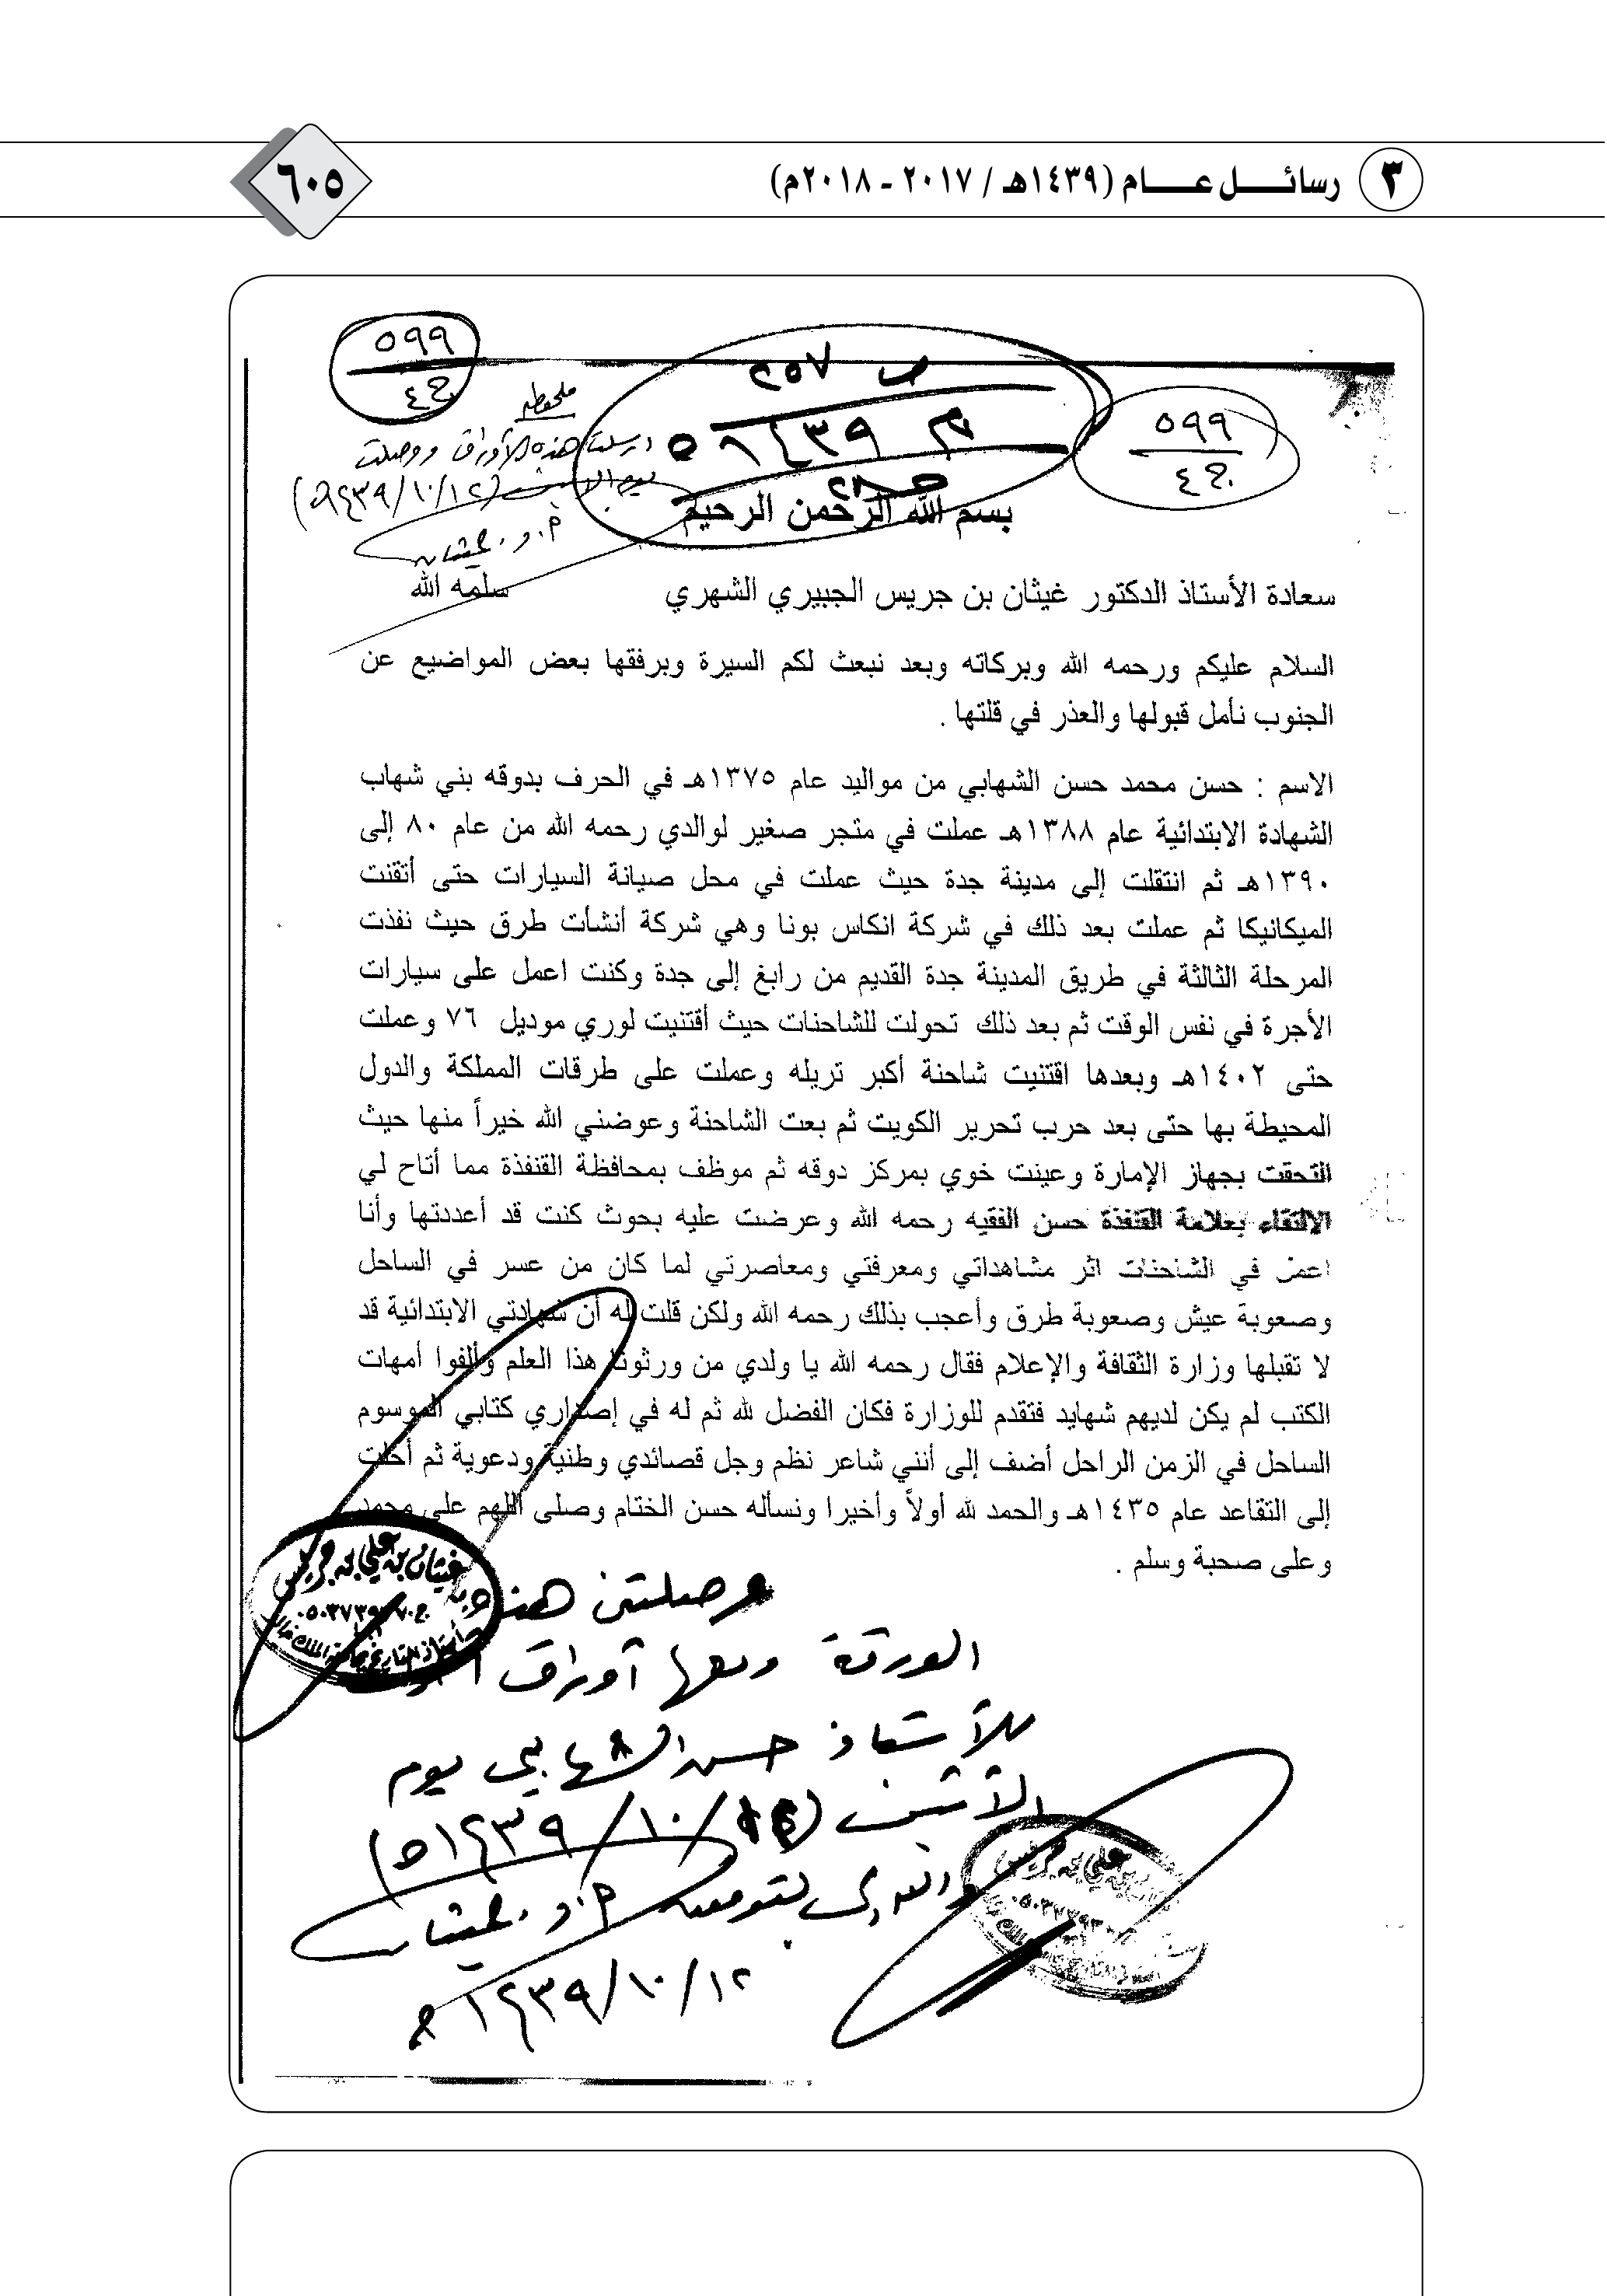 ٣ رسائل عام (١٤٣٩هـ / ٢٠١٧ - ٢٠١٨م)
٦٠٥
٥٩٩
ج٤
ص ٢٥٧
م ١٤٣٩هـ
٥٩٩
ج٤
ملحوظة
أرسلت هذه الأوراق ووصلت
يوم الاثنين (١٤٣٩/١٠/١٢هـ)
أ.د. غيثان
بسم الله الرحمن الرحيم
سعادة الأستاذ الدكتور غيثان بن جريس الجبيري الشهري سلمه الله
السلام عليكم ورحمه الله وبركاته وبعد نبعث لكم السيرة وبرفقها بعض المواضيع عن
الجنوب نأمل قبولها والعذر في قلتها .
الاسم : حسن محمد حسن الشهابي من مواليد عام ١٣٧٥هـ في الحرف بدوقه بني شهاب
الشهادة الابتدائية عام ١٣٨٨هـ عملت في متجر صغير لوالدي رحمه الله من عام ٨٠ إلى
١٣٩٠هـ ثم انتقلت إلى مدينة جدة حيث عملت في محل صيانة السيارات حتى أتقنت
الميكانيكا ثم عملت بعد ذلك في شركة انكاس بونا وهي شركة أنشأت طرق حيث نفذت
المرحلة الثالثة في طريق المدينة جدة القديم من رابغ إلى جدة وكنت اعمل على سيارات
الأجرة في نفس الوقت ثم بعد ذلك تحولت للشاحنات حيث أقتنيت لوري موديل ٧٦ وعملت
حتى ١٤٠٢هـ وبعدها اقتنيت شاحنة أكبر تريله وعملت على طرقات المملكة والدول
المحيطة بها حتى بعد حرب تحرير الكويت ثم بعت الشاحنة وعوضني الله خيراً منها حيث
التحقت بجهاز الإمارة وعينت خوي بمركز دوقه ثم موظف بمحافظة القنفذة مما أتاح لي
الالتقاء بعلامة القنفذة حسن الفقيه رحمه الله وعرضت عليه بحوث كنت قد أعددتها وأنا
اعمل في الشاحنات اثر مشاهداتي ومعرفتي ومعاصرتي لما كان من عسر في الساحل
وصعوبة عيش وصعوبة طرق وأعجب بذلك رحمه الله ولكن قلت له أن شهادتي الابتدائية قد
لا تقبلها وزارة الثقافة والإعلام فقال رحمه الله يا ولدي من ورثونا هذا العلم وألفوا أمهات
الكتب لم يكن لديهم شهايد فتقدم للوزارة فكان الفضل لله ثم له في إصداري كتابي الموسوم
الساحل في الزمن الراحل أضف إلى أنني شاعر نظم وجل قصائدي وطنية ودعوية ثم أحلت
إلى التقاعد عام ١٤٣٥هـ والحمد لله أولاً وأخيرا ونسأله حسن الختام وصلى اللهم على محمد
وعلى صحبة وسلم .
وصلتني هذه
الورقة ومعها أوراق
للأستاذ حسن الشهابي يوم
الاثنين (١٢/١٠/١٤٣٩هـ)
والله ولي التوفيق أ.د. غيثان
١٤٣٩/١٠/١٢هـ
غيثان بن علي بن جريس
أستاذ التاريخ بجامعة الملك خالد
علي بن جريس